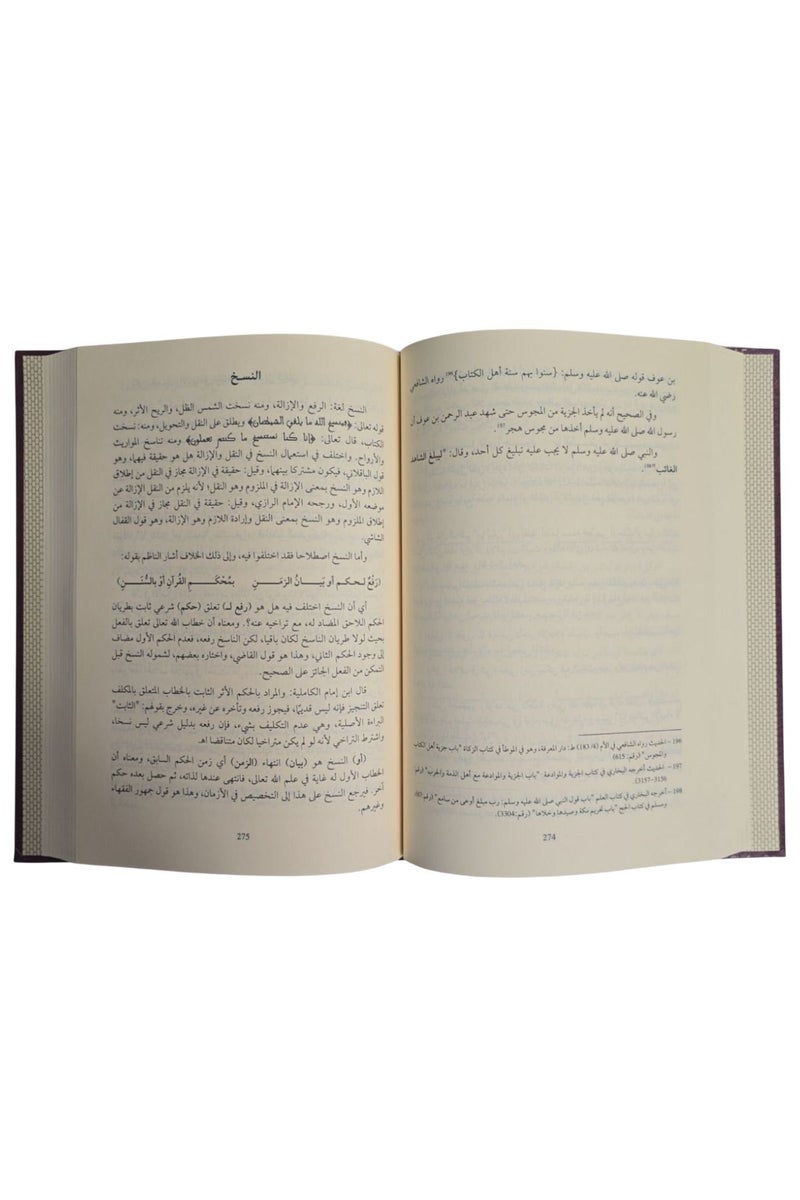 بن عوف قوله صلى الله عليه وسلم: {سنوا بهم سنة أهل الكتاب}⁽¹⁹⁶⁾ رواه الشافعي
رضي الله عنه.
وفي الصحيح أنه لم يأخذ الجزية من المجوس حتى شهد عبد الرحمن بن عوف أن
رسول الله صلى الله عليه وسلم أخذها من مجوس هجر
والنبي صلى الله عليه وسلم لا يجب عليه تبليغ كل أحد، وقال: "ليبلغ الشاهد
الغائب"⁽¹⁹⁸⁾.
196 - الحديث رواه الشافعي في الأم (183/4) ط: دار المعرفة، وهو في الموطأ في كتاب الزكاة "باب جزية أهل الكتاب
والمجوس" (رقم: 615)
197 - الحديث أخرجه البخاري في كتاب الجزية والموادعة "باب الجزية والموادعة مع أهل الذمة والحرب" (رقم:
3156-3157).
198 - أخرجه البخاري في كتاب العلم "باب قول النبي صلى الله عليه وسلم: رب مبلغ أوعى من سامع" (رقم: 67)
ومسلم في كتاب الحج "باب تحريم مكة وصيدها وخلاها" (رقم: 3304).
274
النسخ
النسخ لغة: الرفع والإزالة، ومنه نسخت الشمس الظل، والريح الأثر، ومنه
قوله تعالى: ﴿فينسخ الله ما يلقي الشيطان﴾ ويطلق على النقل والتحويل، ومنه: نسخت
الكتاب، قال تعالى: ﴿إنا كنا نستنسخ ما كنتم تعملون﴾ ومنه تناسخ المواريث
والأرواح. واختلف في استعمال النسخ في النقل والإزالة هل هو حقيقة فيهما، وهو
قول الباقلاني، فيكون مشتركا بينهما، وقيل: حقيقة في الإزالة مجاز في النقل من إطلاق
اللازم وهو النسخ بمعنى الإزالة في الملزوم وهو النقل؛ لأنه يلزم من النقل الإزالة عن
موضعه الأول، ورجحه الإمام الرازي، وقيل: حقيقة في النقل مجاز في الإزالة من
إطلاق الملزوم وهو النسخ بمعنى النقل وإرادة اللازم وهو الإزالة، وهو قول القفال
الشاشي.
وأما النسخ اصطلاحا فقد اختلفوا فيه، وإلى ذلك الخلاف أشار الناظم بقوله:
(رَفْعٌ لحكم أو بَيَانُ الزمَنِ بمُحْكَمِ القُرآنِ أوْ بالسُّنَنِ)
أي أن النسخ اختلف فيه هل هو (رفع لـ) تعلق (حكم) شرعي ثابت بطريان
الحكم اللاحق المضاد له، مع تراخيه عنه؟. ومعناه أن خطاب الله تعالى تعلق بالفعل
بحيث لولا طريان الناسخ لكان باقيا، لكن الناسخ رفعه، فعدم الحكم الأول مضاف
إلى وجود الحكم الثاني، وهذا هو قول القاضي، واختاره بعضهم، لشموله النسخ قبل
التمكن من الفعل الجائز على الصحيح.
قال ابن إمام الكاملية: والمراد بالحكم الأثر الثابت بالخطاب المتعلق بالمكلف
تعلق التنجيز فإنه ليس قديمًا، فيجوز رفعه وتأخره عن غيره، وخرج بقولهم: "الثابت"
البراءة الأصلية، وهي عدم التكليف بشيء، فإن رفعه بدليل شرعي ليس نسخا،
واشترط التراخي لأنه لو لم يكن متراخيا لكان متناقضا اهـ.
(أو) النسخ هو (بيان) انتهاء (الزمن) أي زمن الحكم السابق، ومعناه أن
الخطاب الأول له غاية في علم الله تعالى، فانتهى عندها لذاته، ثم حصل بعده حكم
آخر. فيرجع النسخ على هذا إلى التخصيص في الأزمان، وهذا هو قول جمهور الفقهاء
وغيرهم.
275